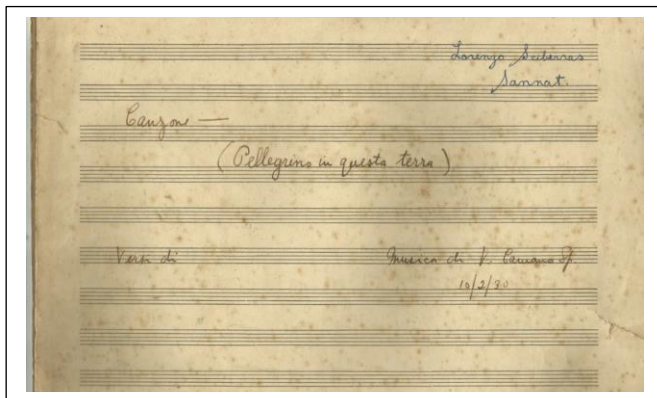 Lorenzo Sciberras
Sannat.
Canzone —
(Pellegrino in questa terra)
Versi di
Musica di V. Caruana
10/2/30